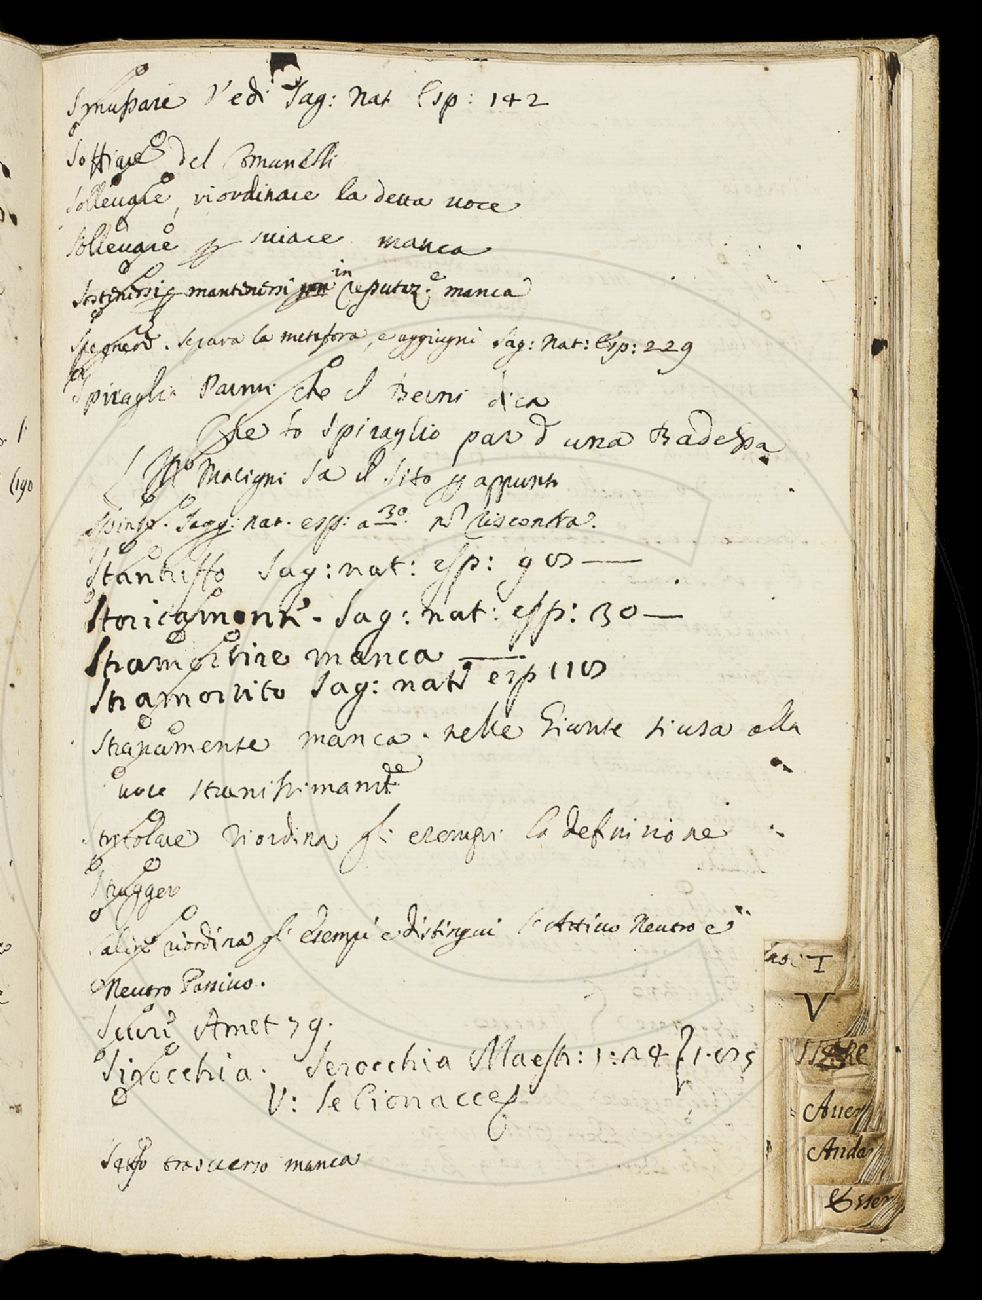 Smussare Vedi Sag: Nat Esp: 142
Soffiare del
Sollevare, riordinare la detta voce
Sollevare p sviare manca
Sostenersi p mantenersi in reputaz.e manca
Spegnere. Separa la metafora, e aggiugni Sag: Nat: Esp: 229
Spiraglio Parmi che il Berni dica
Che lo Spiraglio par d una Badessa
Maligni sa il sito p appunto
Spinto. Sagg: nat. esp: a 30. riscontra.
Stantuffo Sag: nat: esp: 98 —
Storicamente. Sag: nat: esp: 30 —
Stramortire manca —
Stramortito Sag: nat: esp 118
Stranamente manca. nelle Giunte si usa alla
voce stranissimam.te
Riordina gli esempi la definizione
Strugger
Salire riordina gl' esempi e distingui l'Attivo Neutro e
Neutro Passivo.
Amet 79.
Sirocchia. Serocchia Maestr: 1: 24 } 1. 85
V: Se
Salto trasverso manca
T
V
Aver
Anda
Esser